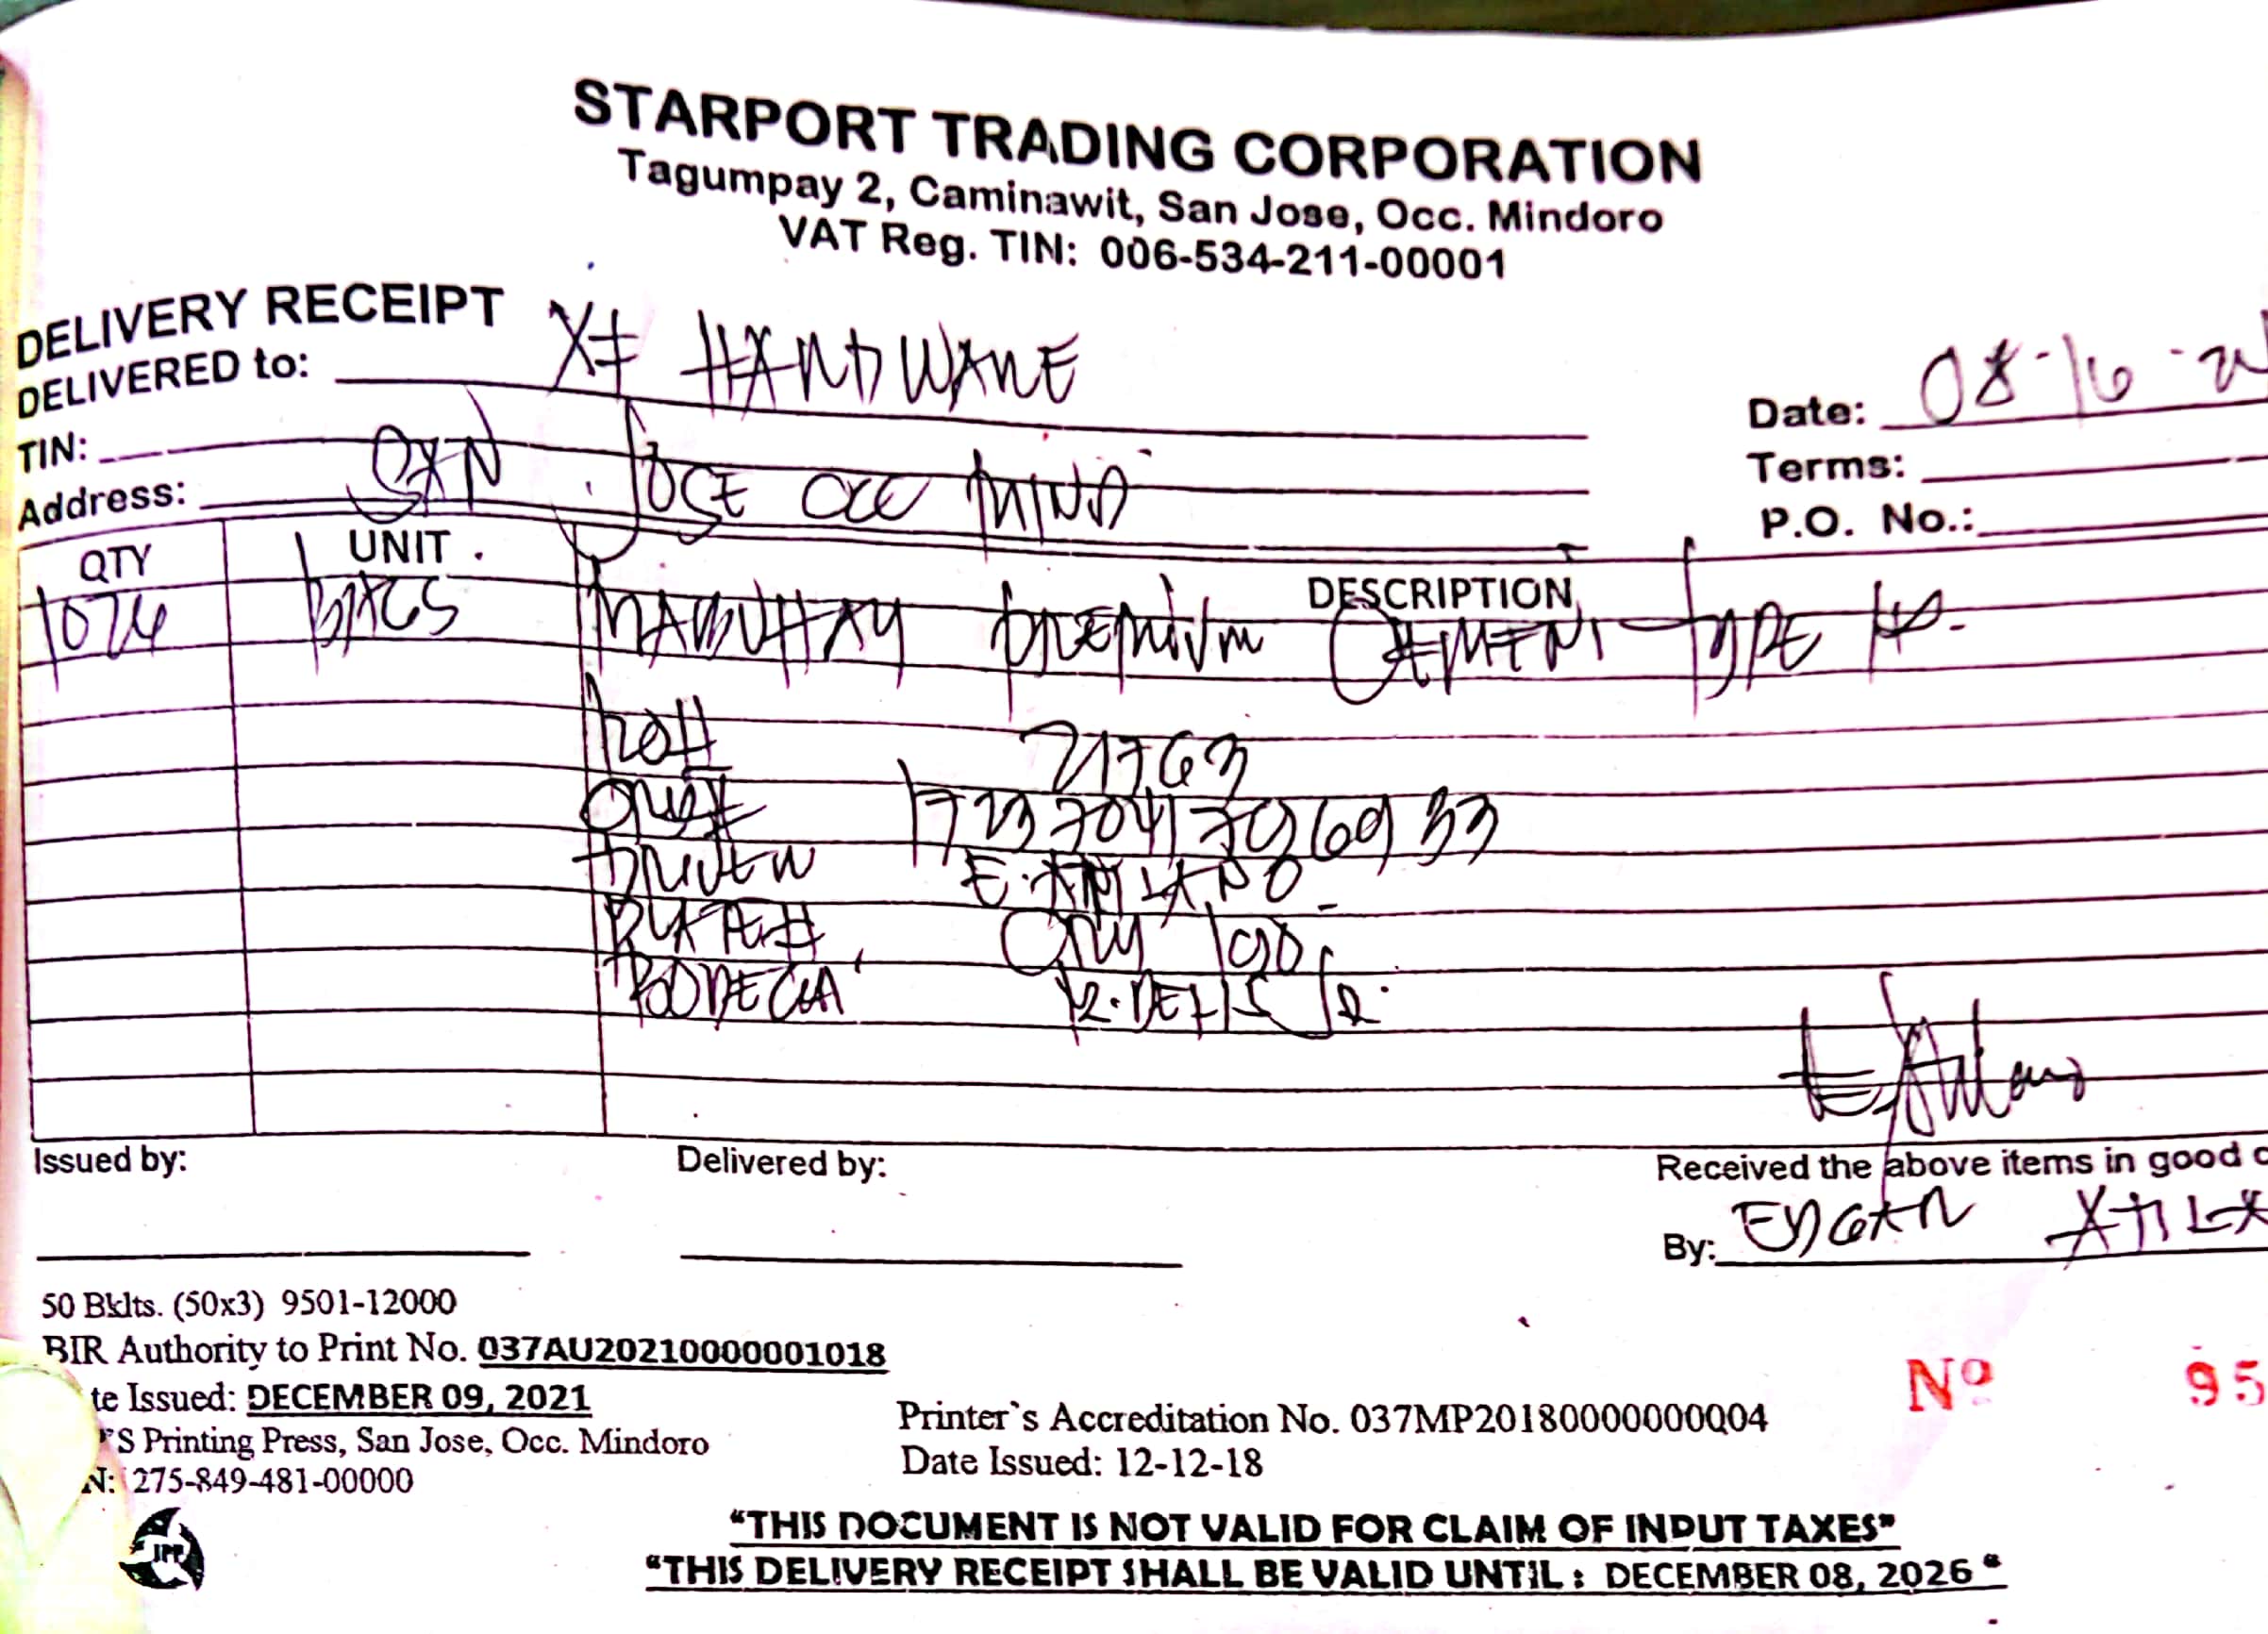 STARPORT TRADING CORPORATION
Tagumpay 2, Caminawit, San Jose, Occ. Mindoro
VAT Reg. TIN: 006-534-211-00001
DELIVERY RECEIPT
DELIVERED to: HARDWARE
Date: 08-16-
TIN:
Terms:
Address: SAN JOSE OCC MIND
P.O. No.:
QTY UNIT DESCRIPTION
BAGS MABUHAY PREMIUM CEMENT TYPE
21763
DRIVER E. ATILANO
PLATE#
BODEGA
Issued by: Delivered by: Received the above items in good
By: EDGAR ATILA
50 Bklts. (50x3) 9501-12000
BIR Authority to Print No. 037AU20210000001018
te Issued: DECEMBER 09, 2021
'S Printing Press, San Jose, Occ. Mindoro
N: 275-849-481-00000
Printer`s Accreditation No. 037MP20180000000004
Date Issued: 12-12-18
Nº 95
JPP
"THIS DOCUMENT IS NOT VALID FOR CLAIM OF INPUT TAXES"
"THIS DELIVERY RECEIPT SHALL BE VALID UNTIL : DECEMBER 08, 2026 "